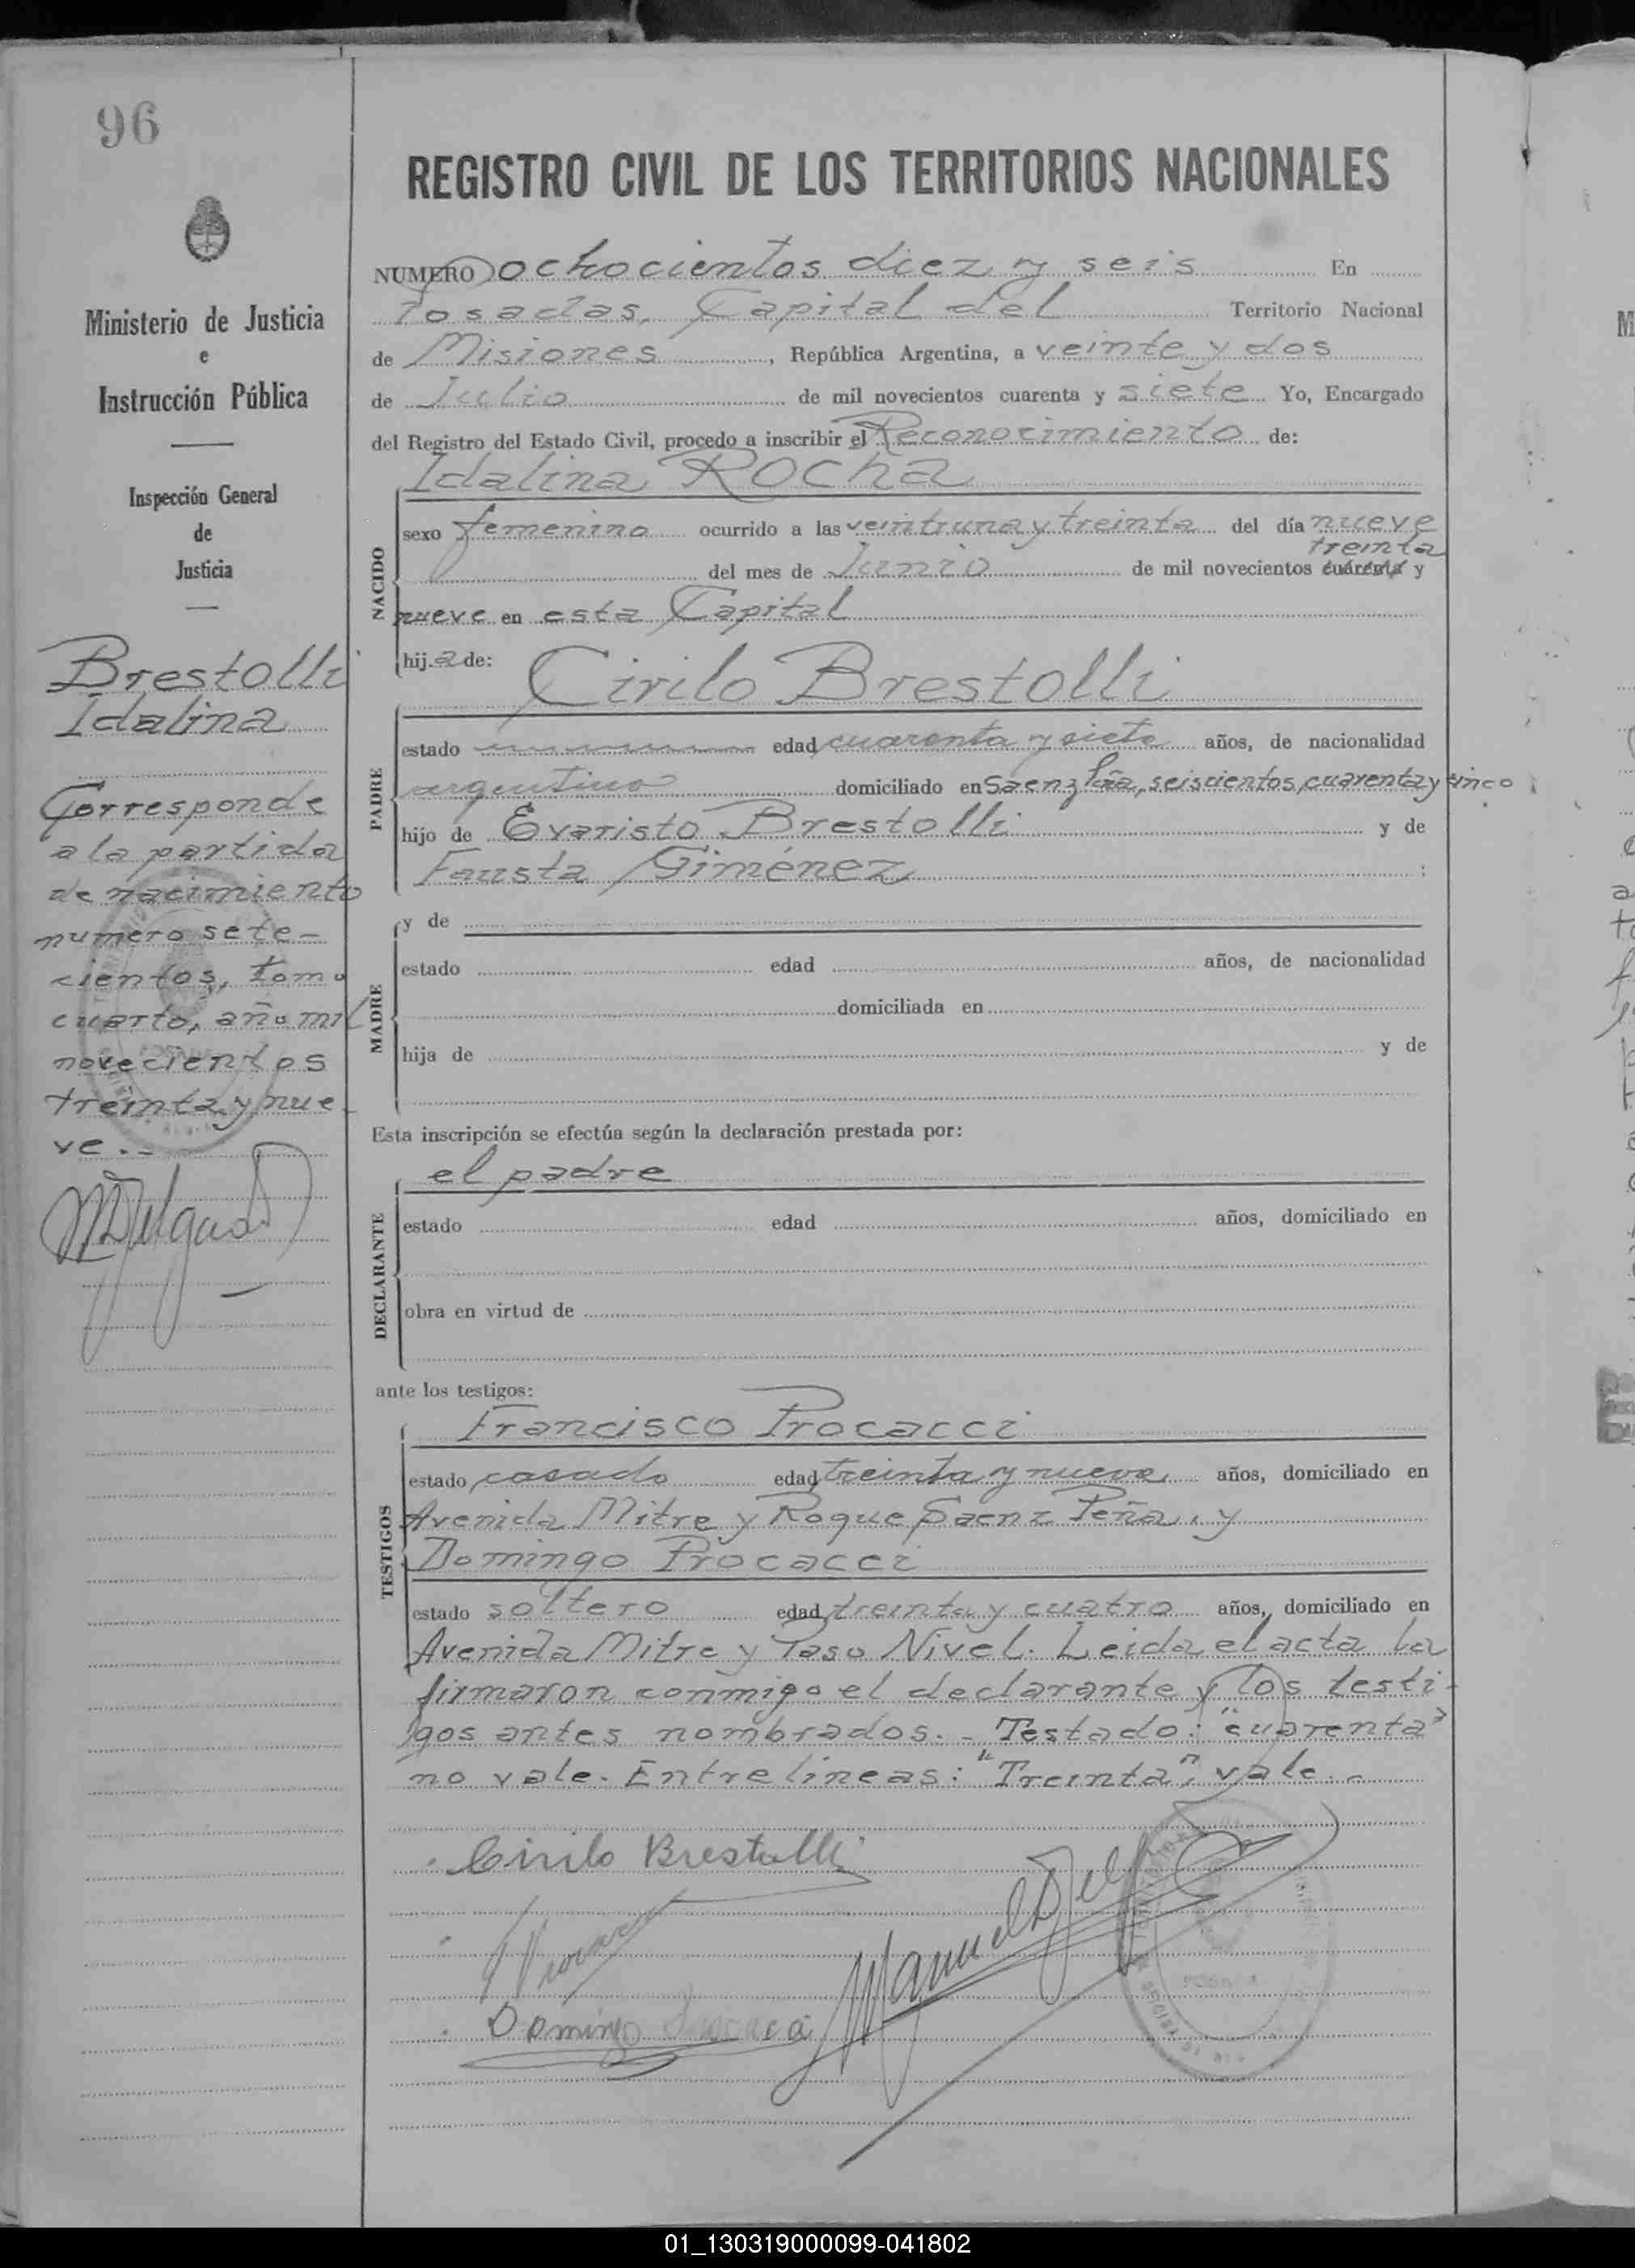 96
REGISTRO CIVIL DE LOS TERRITORIOS NACIONALES
Ministerio de Justicia
e
Instrucción Pública
Inspección General
de
Justicia
Brestolli
Idalina
Corresponde
a la partida
de nacimiento
numero sete-
cientos, tomo
cuarto, año mil
novecientos
treinta y nue-
ve.-
NUMERO ochocientos diez y seis En
Posadas, Capital del Territorio Nacional
de Misiones, República Argentina, a veinte y dos
de Julio de mil novecientos cuarenta y siete. Yo, Encargado
del Registro del Estado Civil, procedo a inscribir el Reconocimiento de:
Idalina Rocha
NACIDO
sexo femenino ocurrido a las veintiuna y treinta del día nueve
treinta
del mes de Junio de mil novecientos cuarenta y
nueve en esta Capital
hija de: Cirilo Brestolli
PADRE
estado edad cuarenta y siete años, de nacionalidad
argentino domiciliado en Saenz Peña, seiscientos cuarenta y cinco
hijo de Evaristo Brestolli y de
Fausta Giménez ;
MADRE
y de
estado edad años, de nacionalidad
domiciliada en
hija de y de
Esta inscripción se efectúa según la declaración prestada por:
el padre
DECLARANTE
estado edad años, domiciliado en
obra en virtud de
ante los testigos:
Francisco Procacci
TESTIGOS
estado casado edad treinta y nueve años, domiciliado en
Avenida Mitre y Roque Saenz Peña, y
Domingo Procacci
estado soltero edad treinta y cuatro años, domiciliado en
Avenida Mitre y Paso Nivel. Leida el acta la
firmaron conmigo el declarante y los testi-
gos antes nombrados.- Testado: "cuarenta"
no vale. Entre lineas: "Treinta", vale.-
Cirilo Brestolli
Domingo
Manuel
01_130319000099-041802